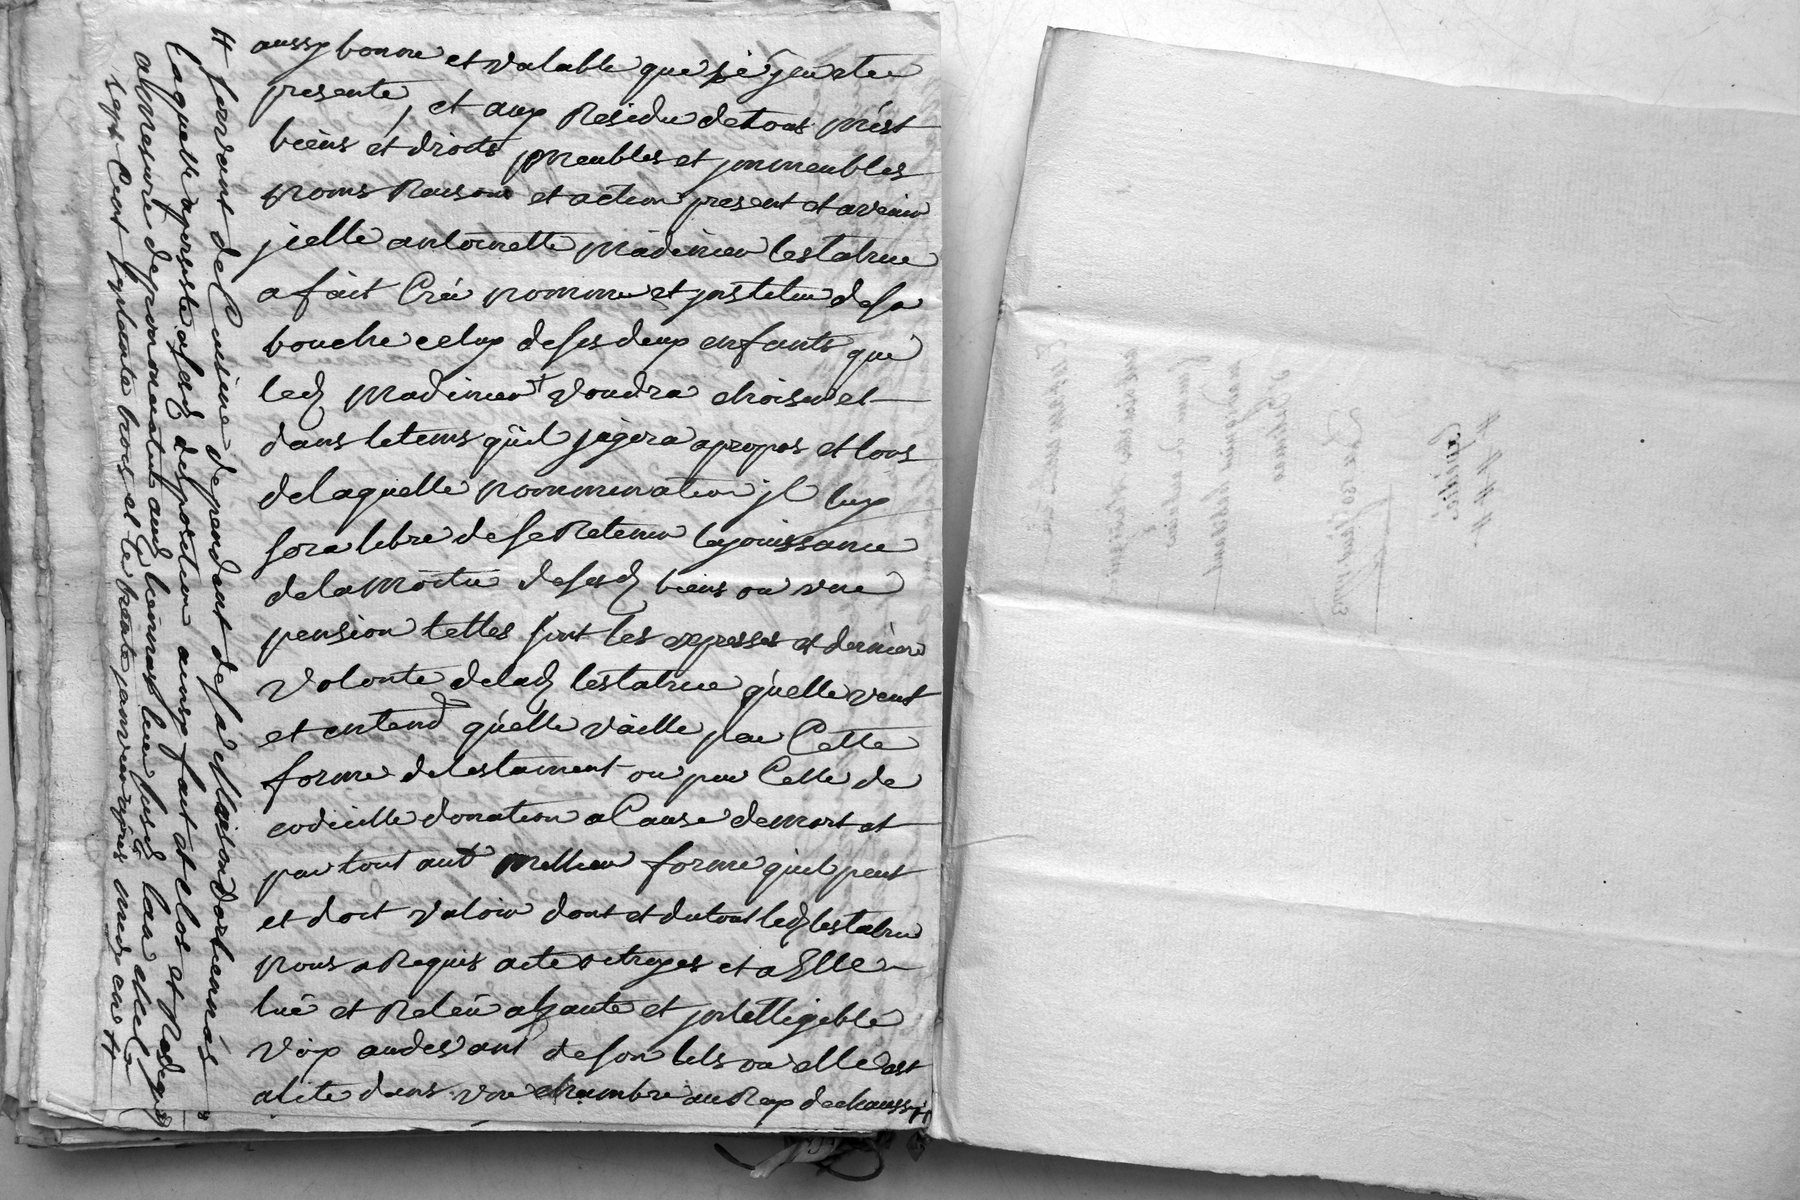 aussy bonne et valable que si yeu etee
presente, et aux Residu de tous
biens et droits meubles et jmmeubles
noms Raisons et action present et avenir
jcelle antoinette madinier testatrice
a fait Créé nommé et jnstitue de sa
bouche celuy de ses deux enfants que
led madinier voudra choisir et
dans letems quil jugera apropos et lors
delaquelle nommination jl luy
sera libre de se Retenir la jouissance
dela moitie de sesd biens ou une
pension telles sont les expresses et derniere
volonte delad testatrice quelle veut
et entend quelle vaille par Cette
forme detestament ou par Celle de
codicille donation a Cause demort et
par tout autre meilleur forme quil peut
et doit valoir dont et dutout led testatrice
nous a Requis acte octroyes et a Elle
lue et Releu a haute et jntelligible
voix audevant de son lit ou elle est
alite dans une chambre au Rez dechaussé
# servant de Cuisine dependant de sa Maison
Laquelle a persisté asad disposition ainsy fait et clos et Redigé
aumesure de prononciation aud lieu susd
sept Cent septante trois et le trente janvier après midy